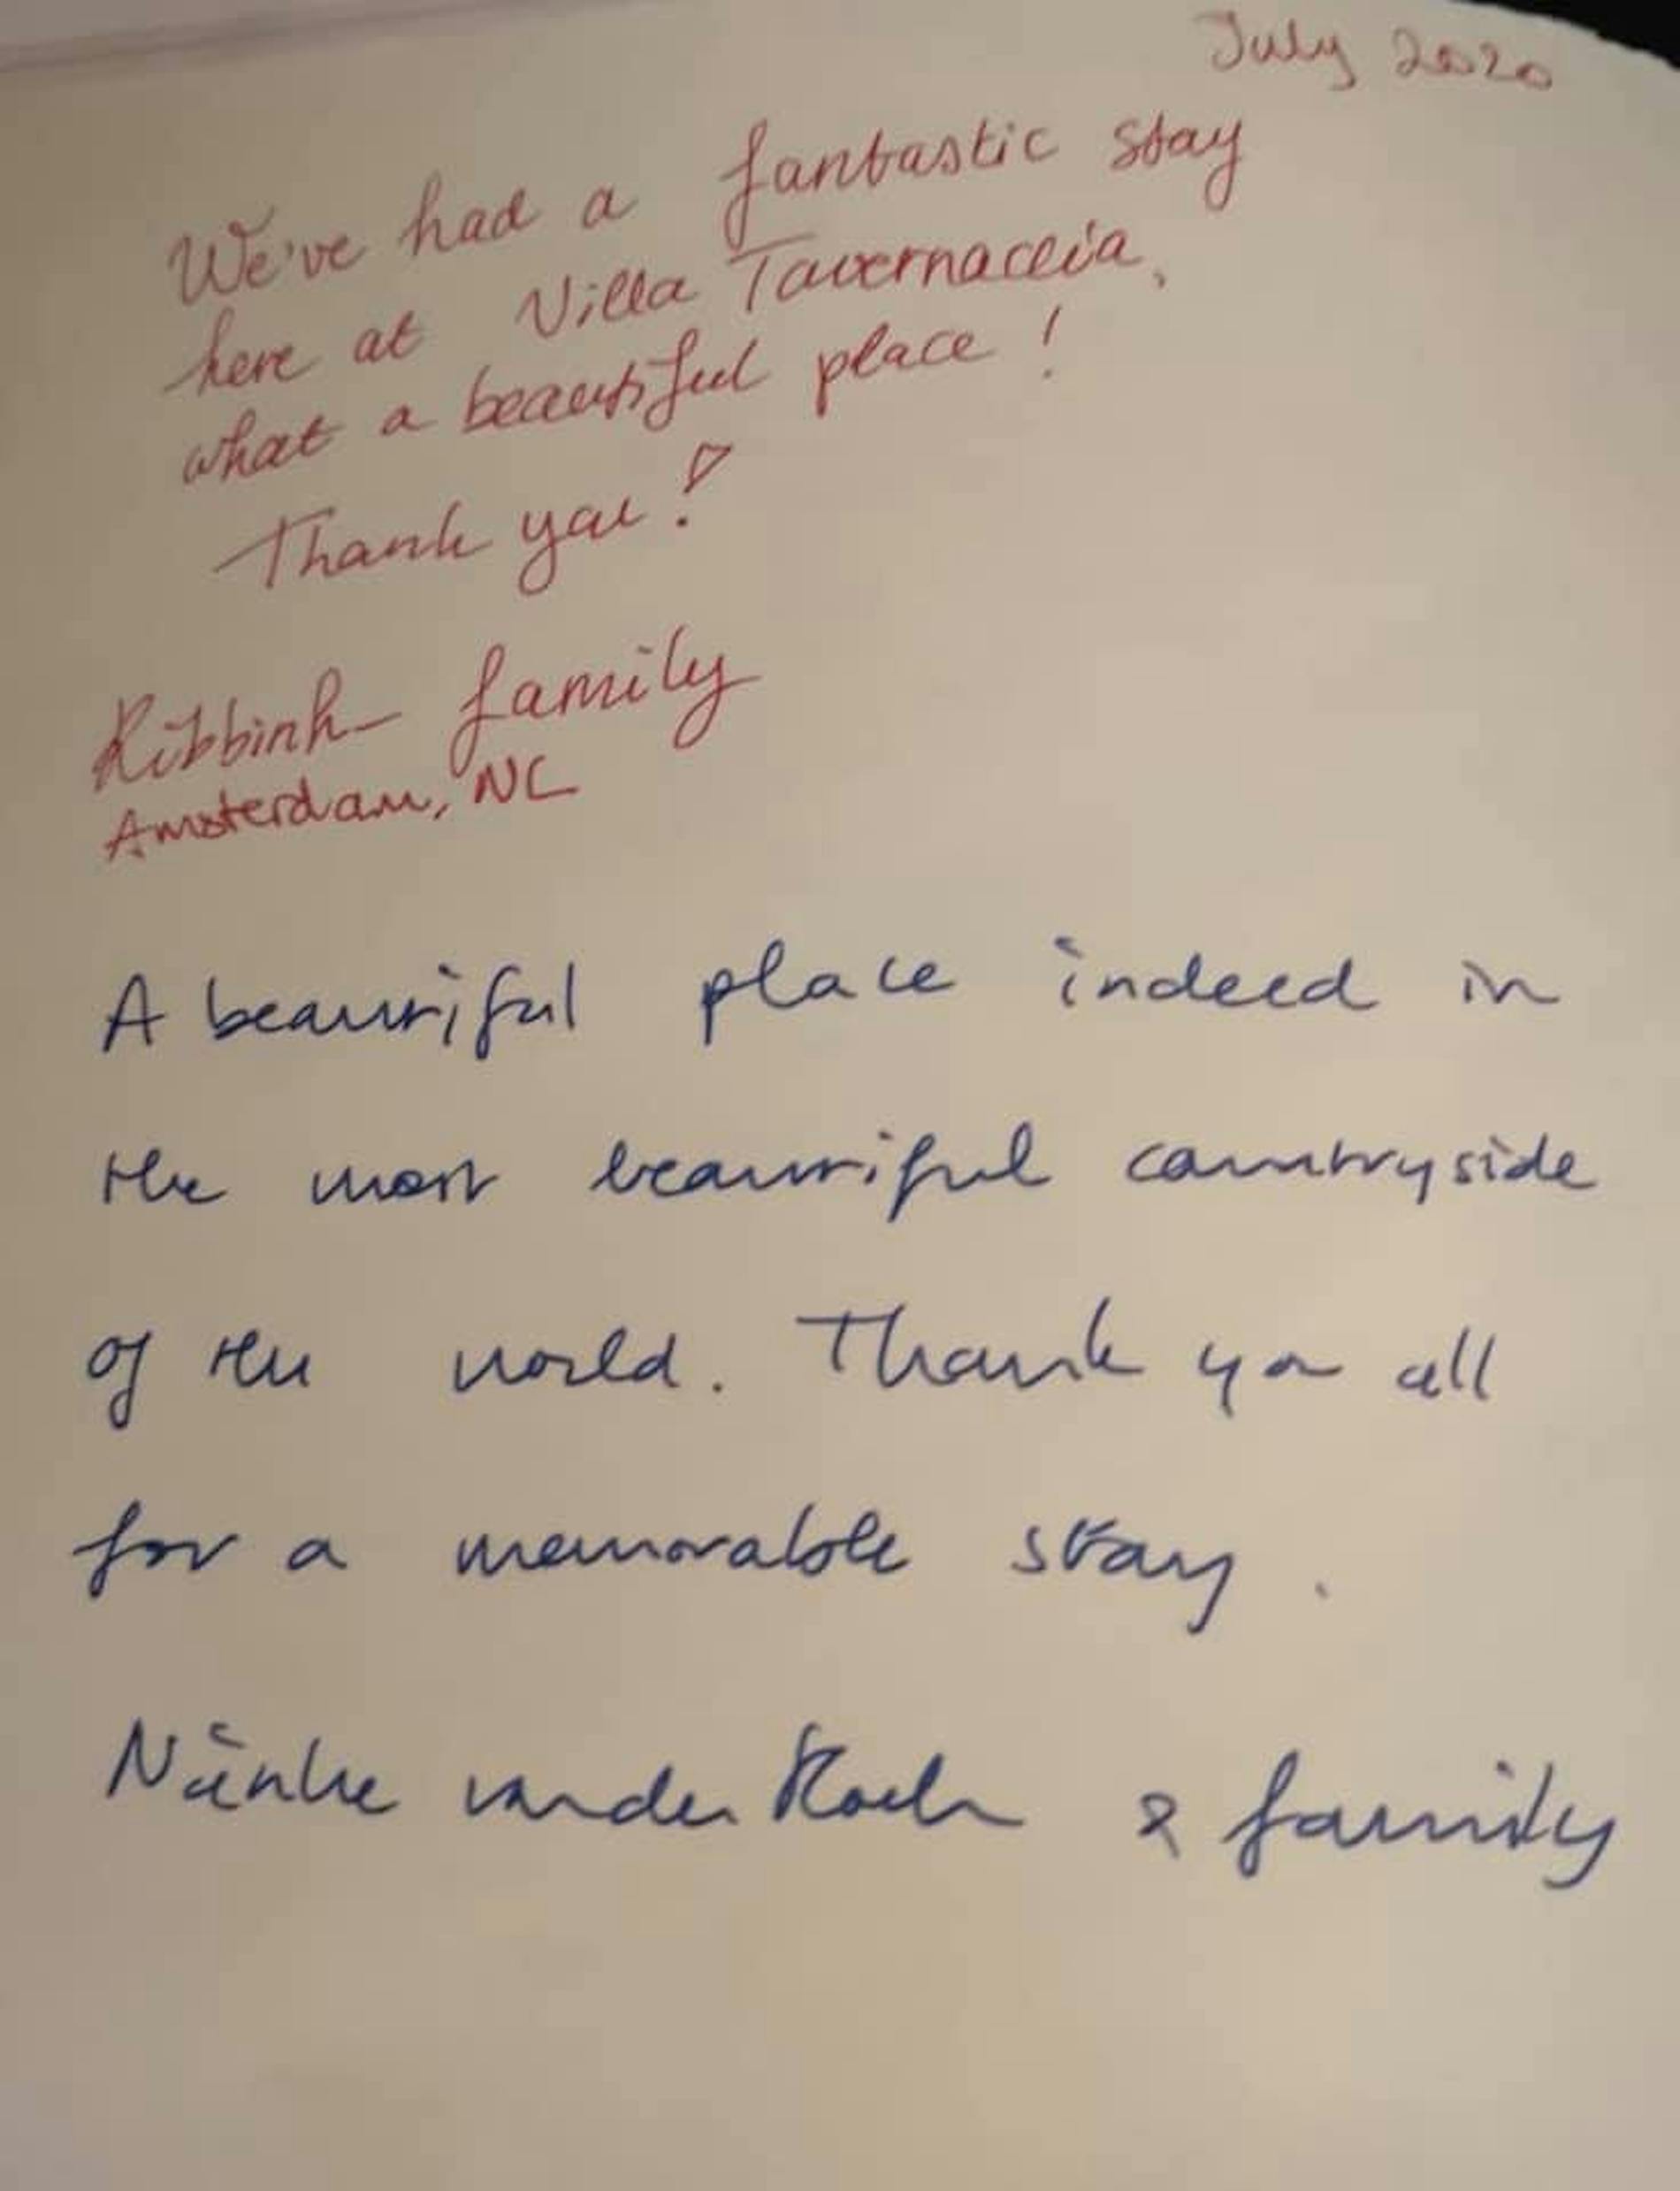 July 2020
We've had a fantastic stay
here at Villa Tavernaccia,
what a beautiful place!
Thank you!
Ribbink family
Amsterdam, NL
A beautiful place indeed in
the most beautiful countryside
of the world. Thank you all
for a memorable stay.
Nienke van der & family